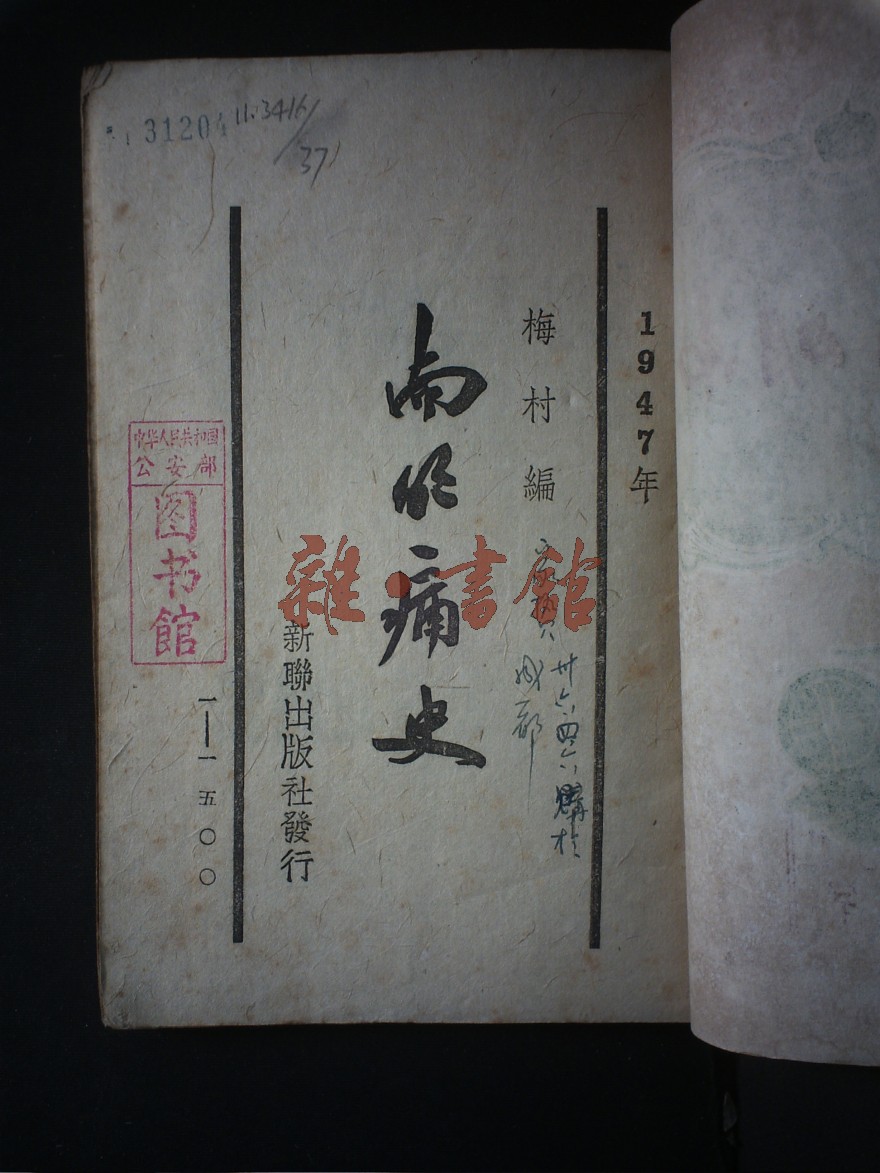 31204
11.3416/
37
1947年
梅村編
卅六、四、六、購於
成都
南明痛史
新聯出版社發行
一—一五〇〇
中华人民共和国
公安部
图书馆
雜·書館